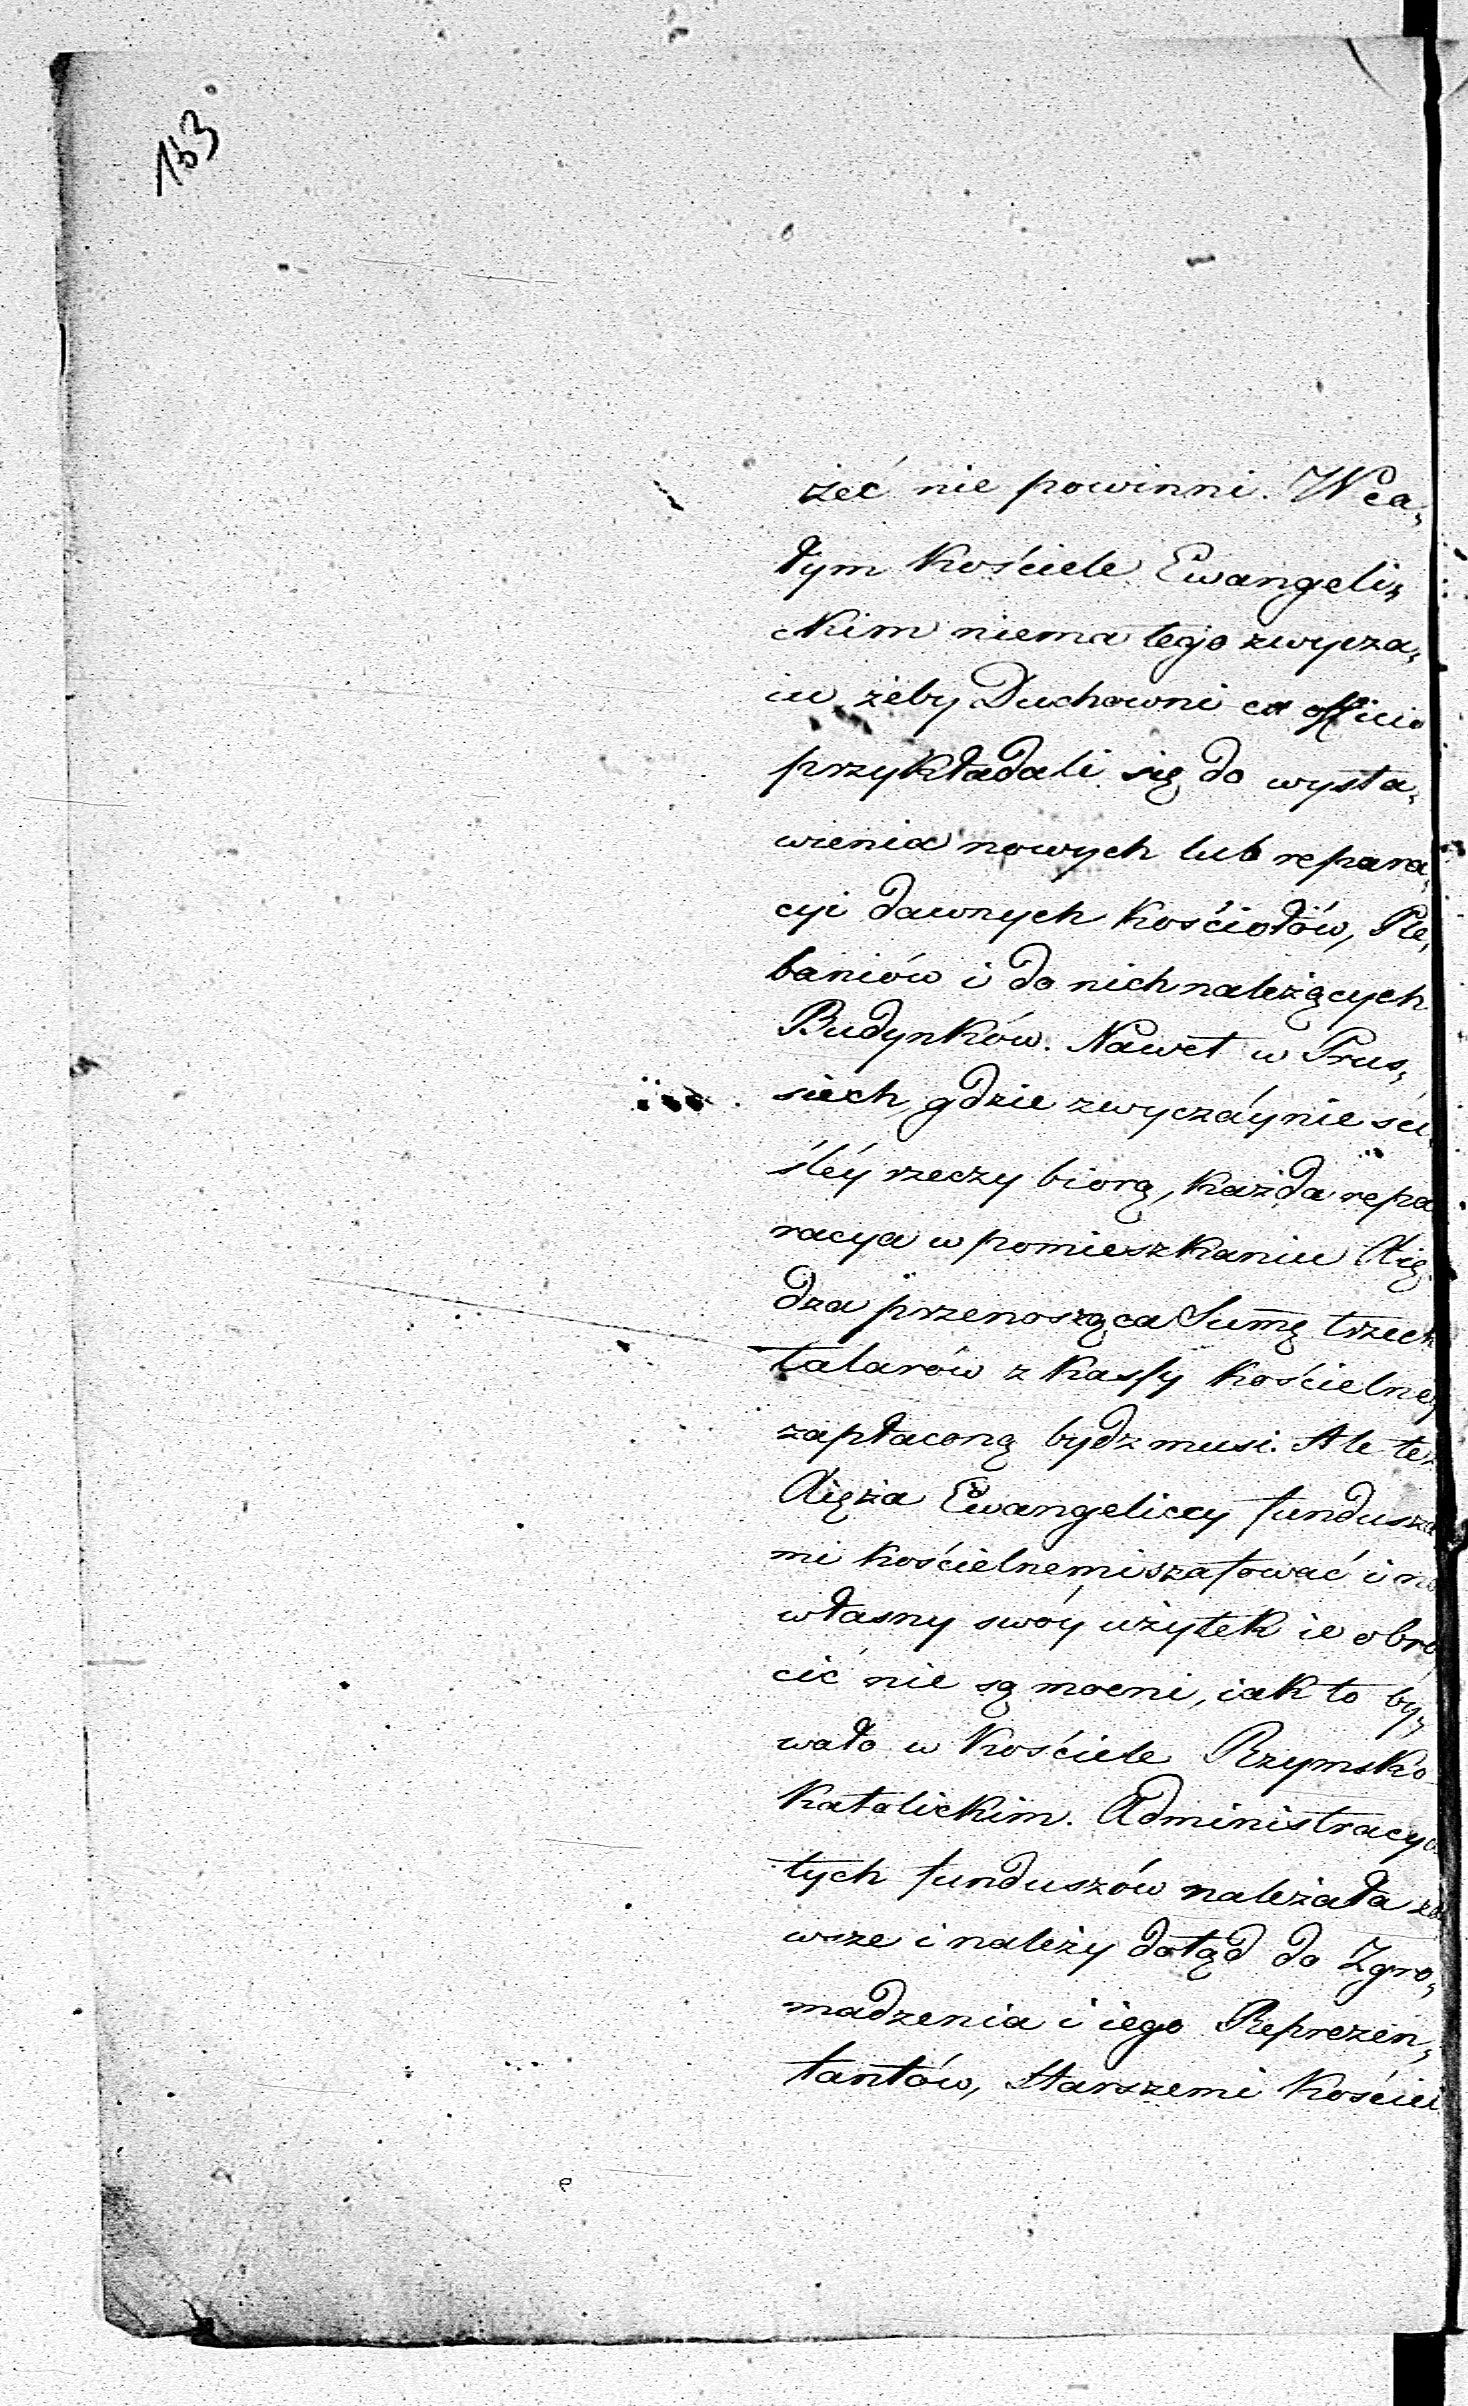 163
żeć nie powinni. W ca„
łym Kościele Ewangeli„
ckim niema tego zwycza„
iu żeby Duchowni ex officio
przykładali się do wysta„
wienia nowych lub repara„
cyi dawnych Kościołów, Ple„
baniów i do nich należących
Budynków. Nawet w Prus„
siech gdzie zwyczáynie ści„
śléy rzeczy biorą, każda repa
racya w pomieszkaniu Xię
dza przenosząca Summę trzech
talarów z Kassy Kościelney
zapłaconą bydz musi. Ale też
Xięża Ewangeliccy fundusza
mi Kościelnemi szafować i na
własny swóy użytek ie obró
cić nie są mocni, iak to by„
wało w Kościele Rzymsko
Katolickim. Administracya
tych funduszów należała za
wsze i należy dotąd do Zgro„
madzenia i iego Reprezen„
tantów, Starszemi Kościel